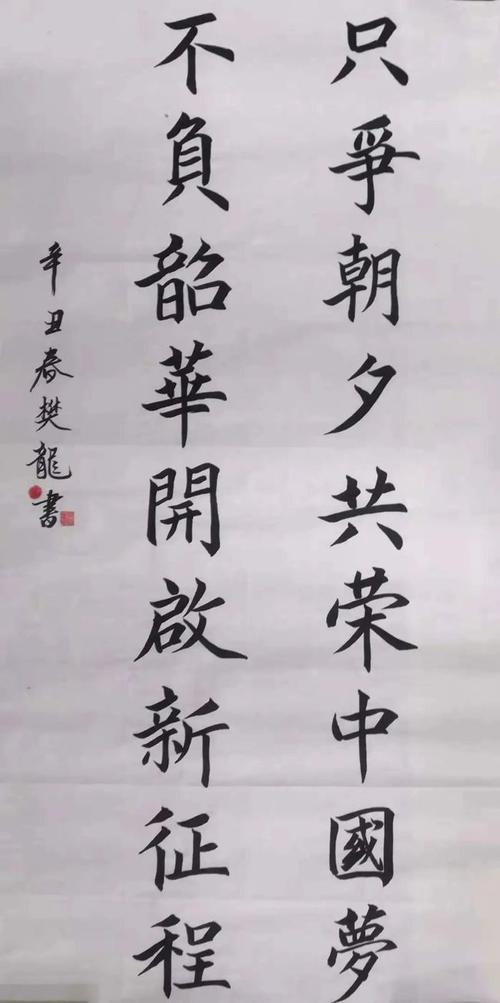 只爭朝夕共荣中國夢
不負韶華開啟新征程
辛丑春樊龍書